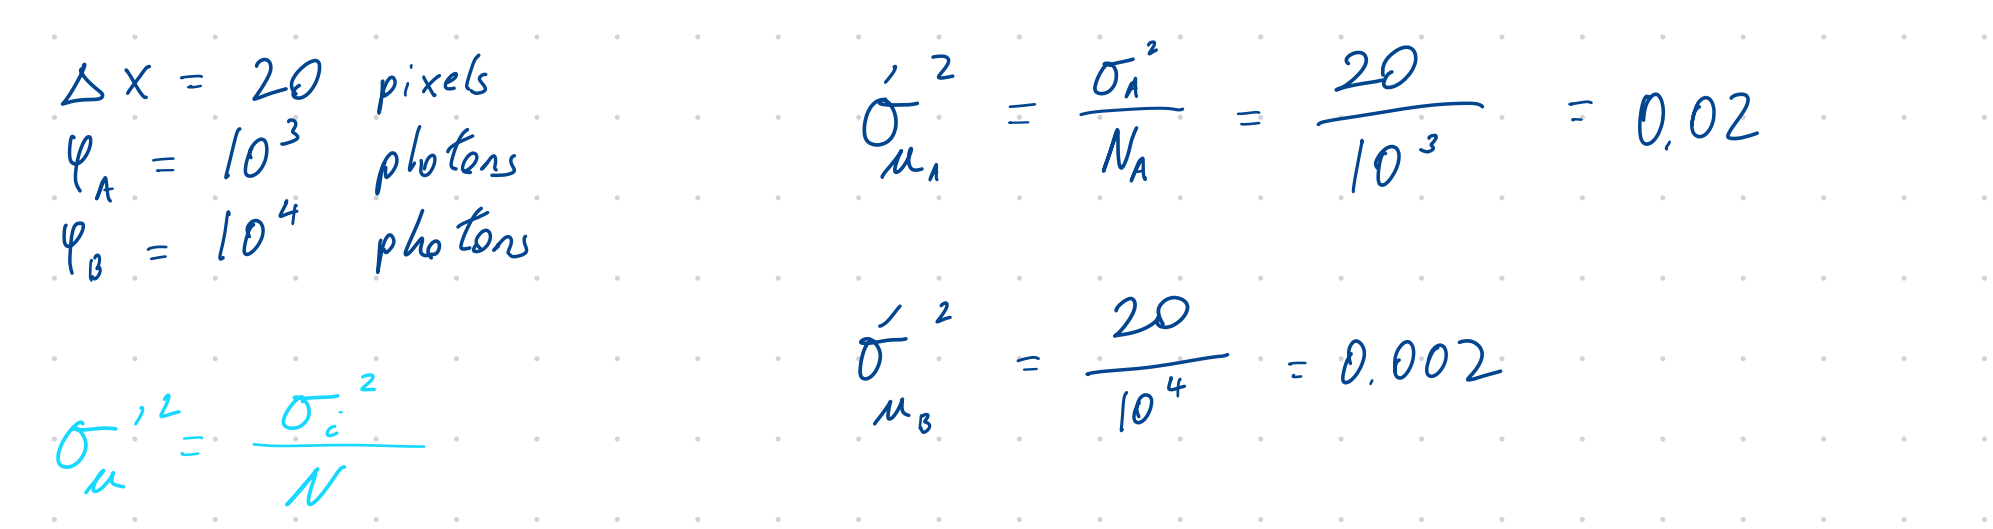 Δx = 20 pixels
φ_A = 10³ photons
φ_B = 10⁴ photons
σ'_μ² = σ_i² / N
σ'_μ_A² = σ_A² / N_A = 20 / 10³ = 0.02
σ'_μ_B² = 20 / 10⁴ = 0.002